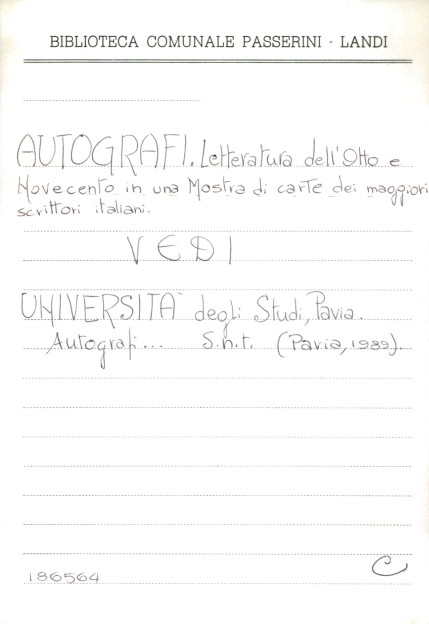 BIBLIOTECA COMUNALE PASSERINI - LANDI
AUTOGRAFI. Letteratura dell'Otto e
Novecento in una Mostra di carte dei maggiori
scrittori italiani.
VEDI
UNIVERSITA` degli Studi, Pavia.
Autografi... S.n.t. (Pavia, 1989).
186564 C